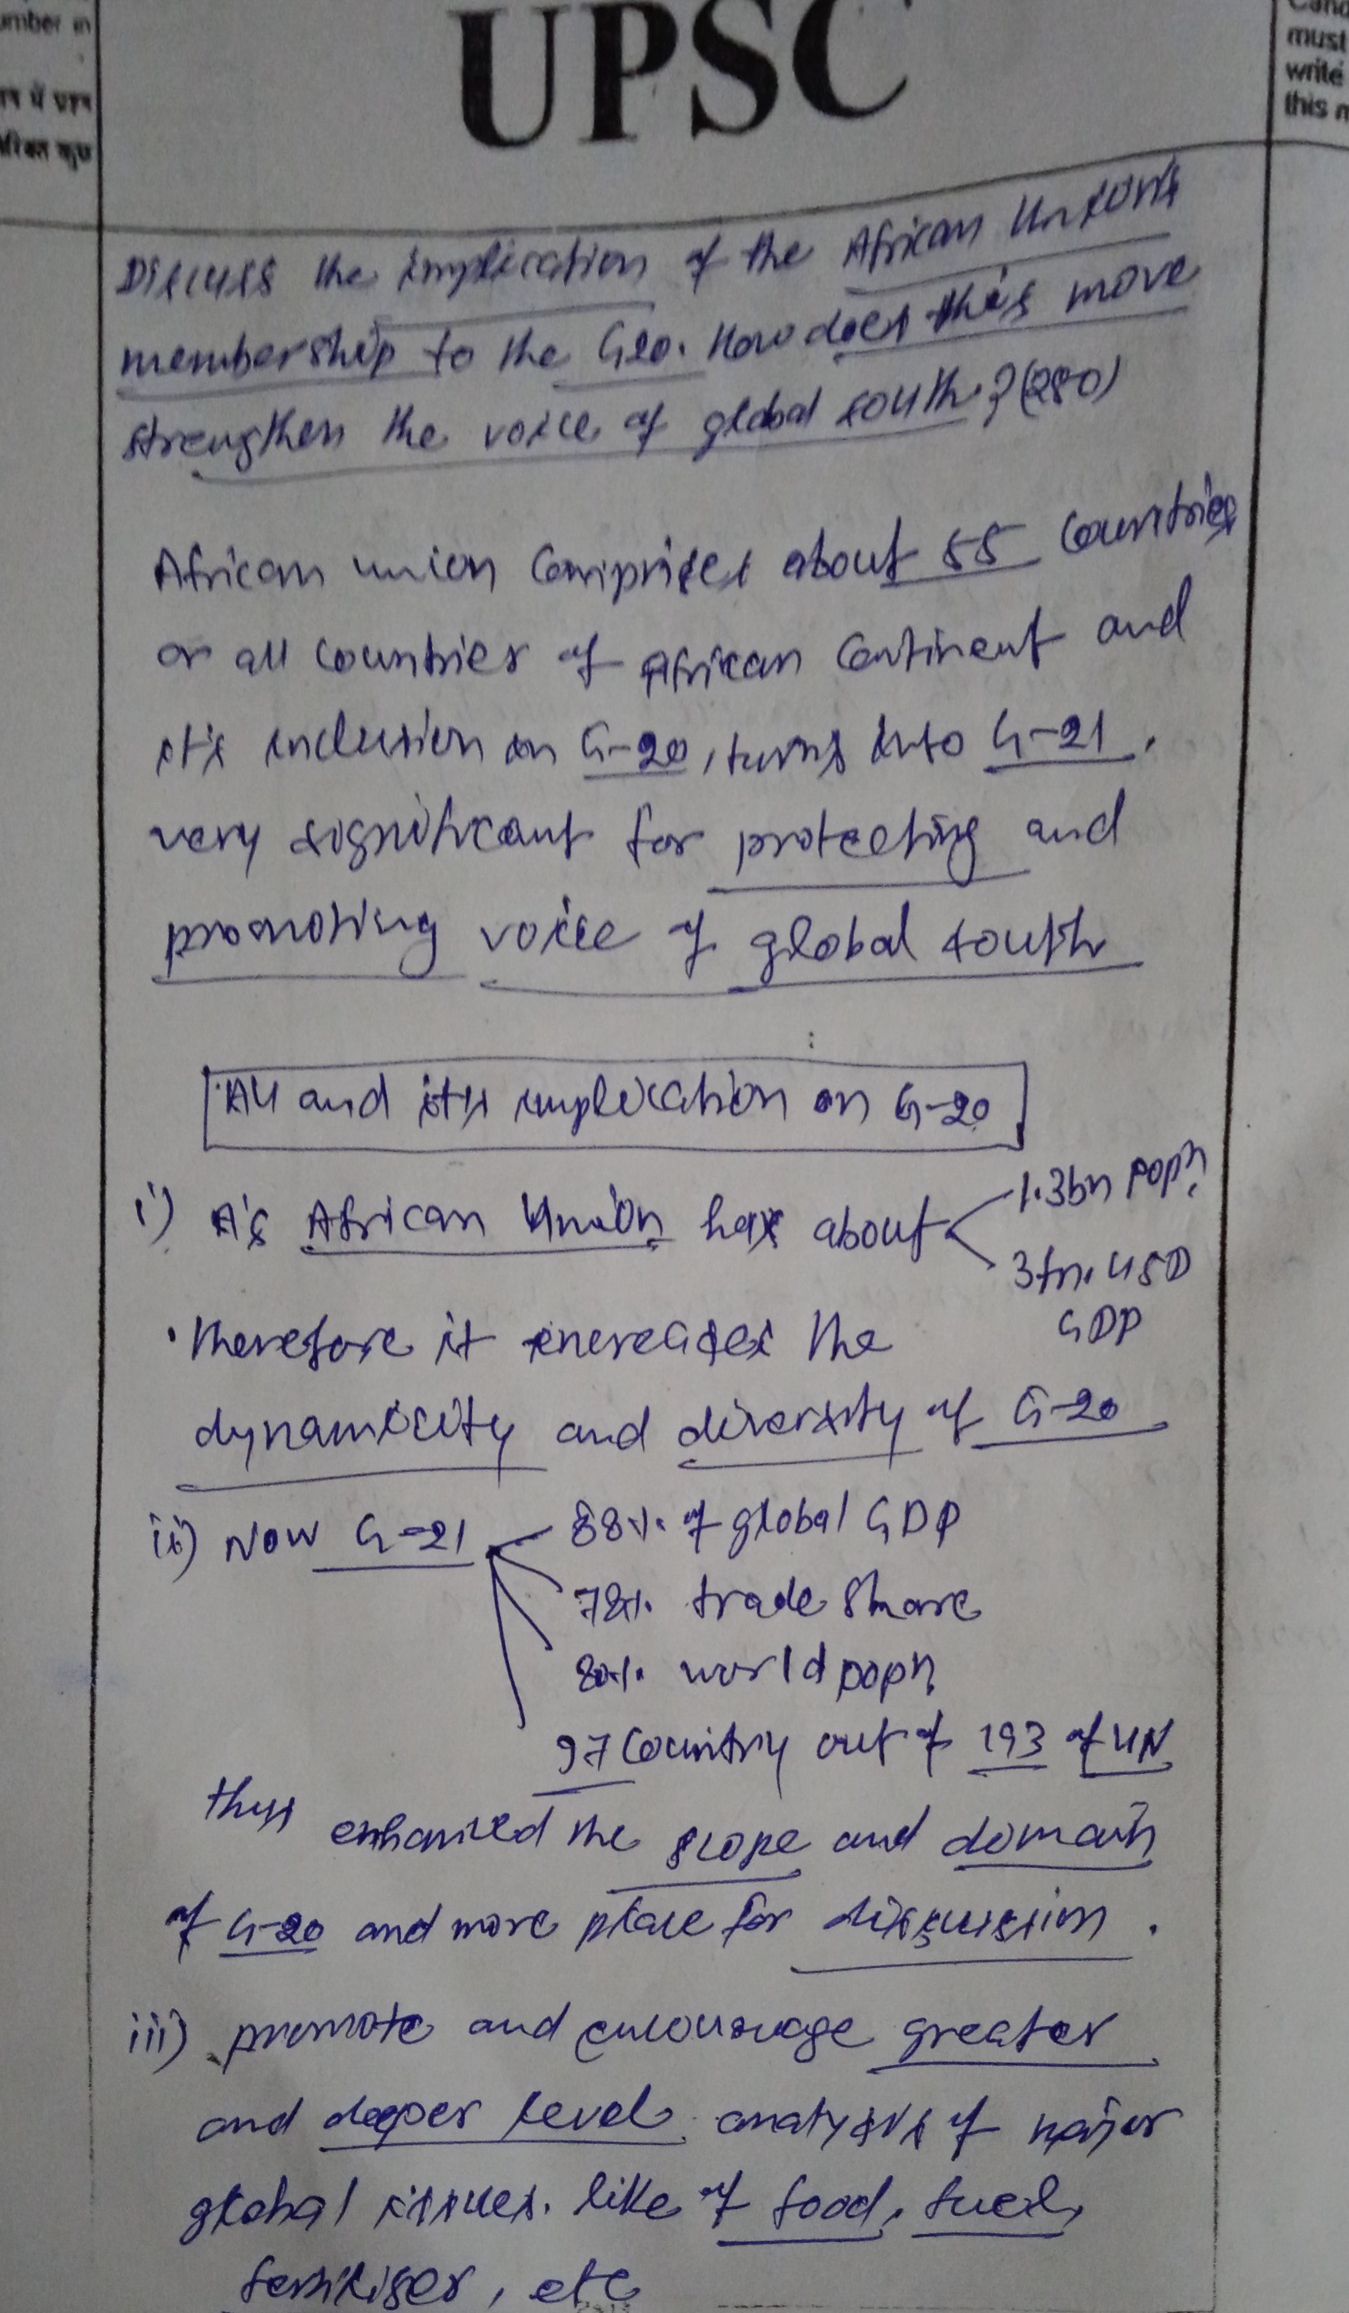 umber in
UPSC
must
write
this
Discuss the implication of the African Union's
membership to the G20. How does this move
strengthen the voice of global south? (250)
African union comprises about 55 countries
or all countries of African Continent and
it's inclusion in G-20, turns into G-21.
very significant for protecting and
promoting voice of global south
AU and it's implication on G-20
i) As African Union has about
1.3bn popn.
3tn. USD
GDP
• therefore it increases the
dynamicity and diversity of G-20
ii) Now G-21
88%. of global GDP
78%. trade share
80%. world popn.
97 Country out of 193 of UN
thus enhanced the scope and domain
of G-20 and more place for discussion.
iii) promote and encourage greater
and deeper level analysis of major
global issues. like of food, fuel,
fertiliser, etc